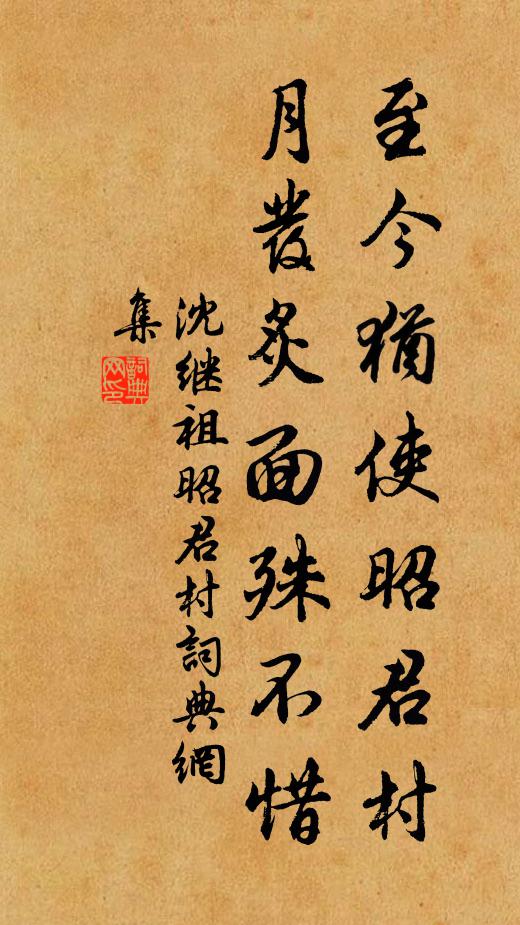 至今猶使昭君村
月發炙面殊不惜
沈继祖昭君村詞典網
集
詞典网印